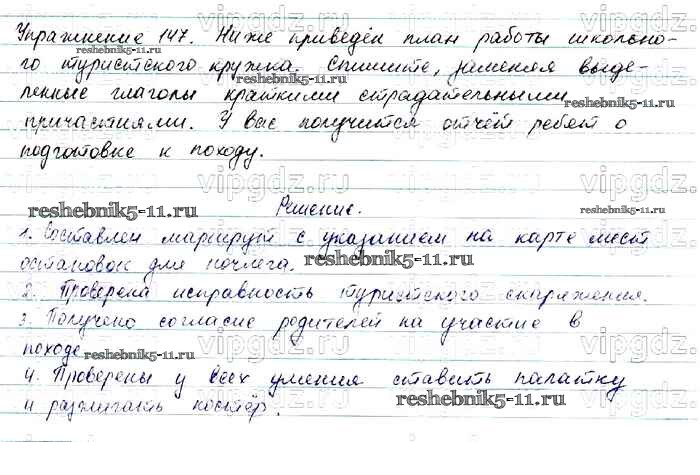 Упражнение 147. Ниже приведён план работы школьно-
го туристского кружка. Спишите, заменяя выде-
ленные глаголы краткими страдательными
причастиями. У вас получится отчёт ребят о
подготовке к походу.
Решение.
1. Составлен маршрут с указанием на карте мест
остановок для ночлега.
2. Проверена исправность туристского снаряжения.
3. Получено согласие родителей на участие в
походе
4. Проверены у всех умения ставить палатку
и разжигать костёр.
vipgdz.ru
reshebnik5-11.ru